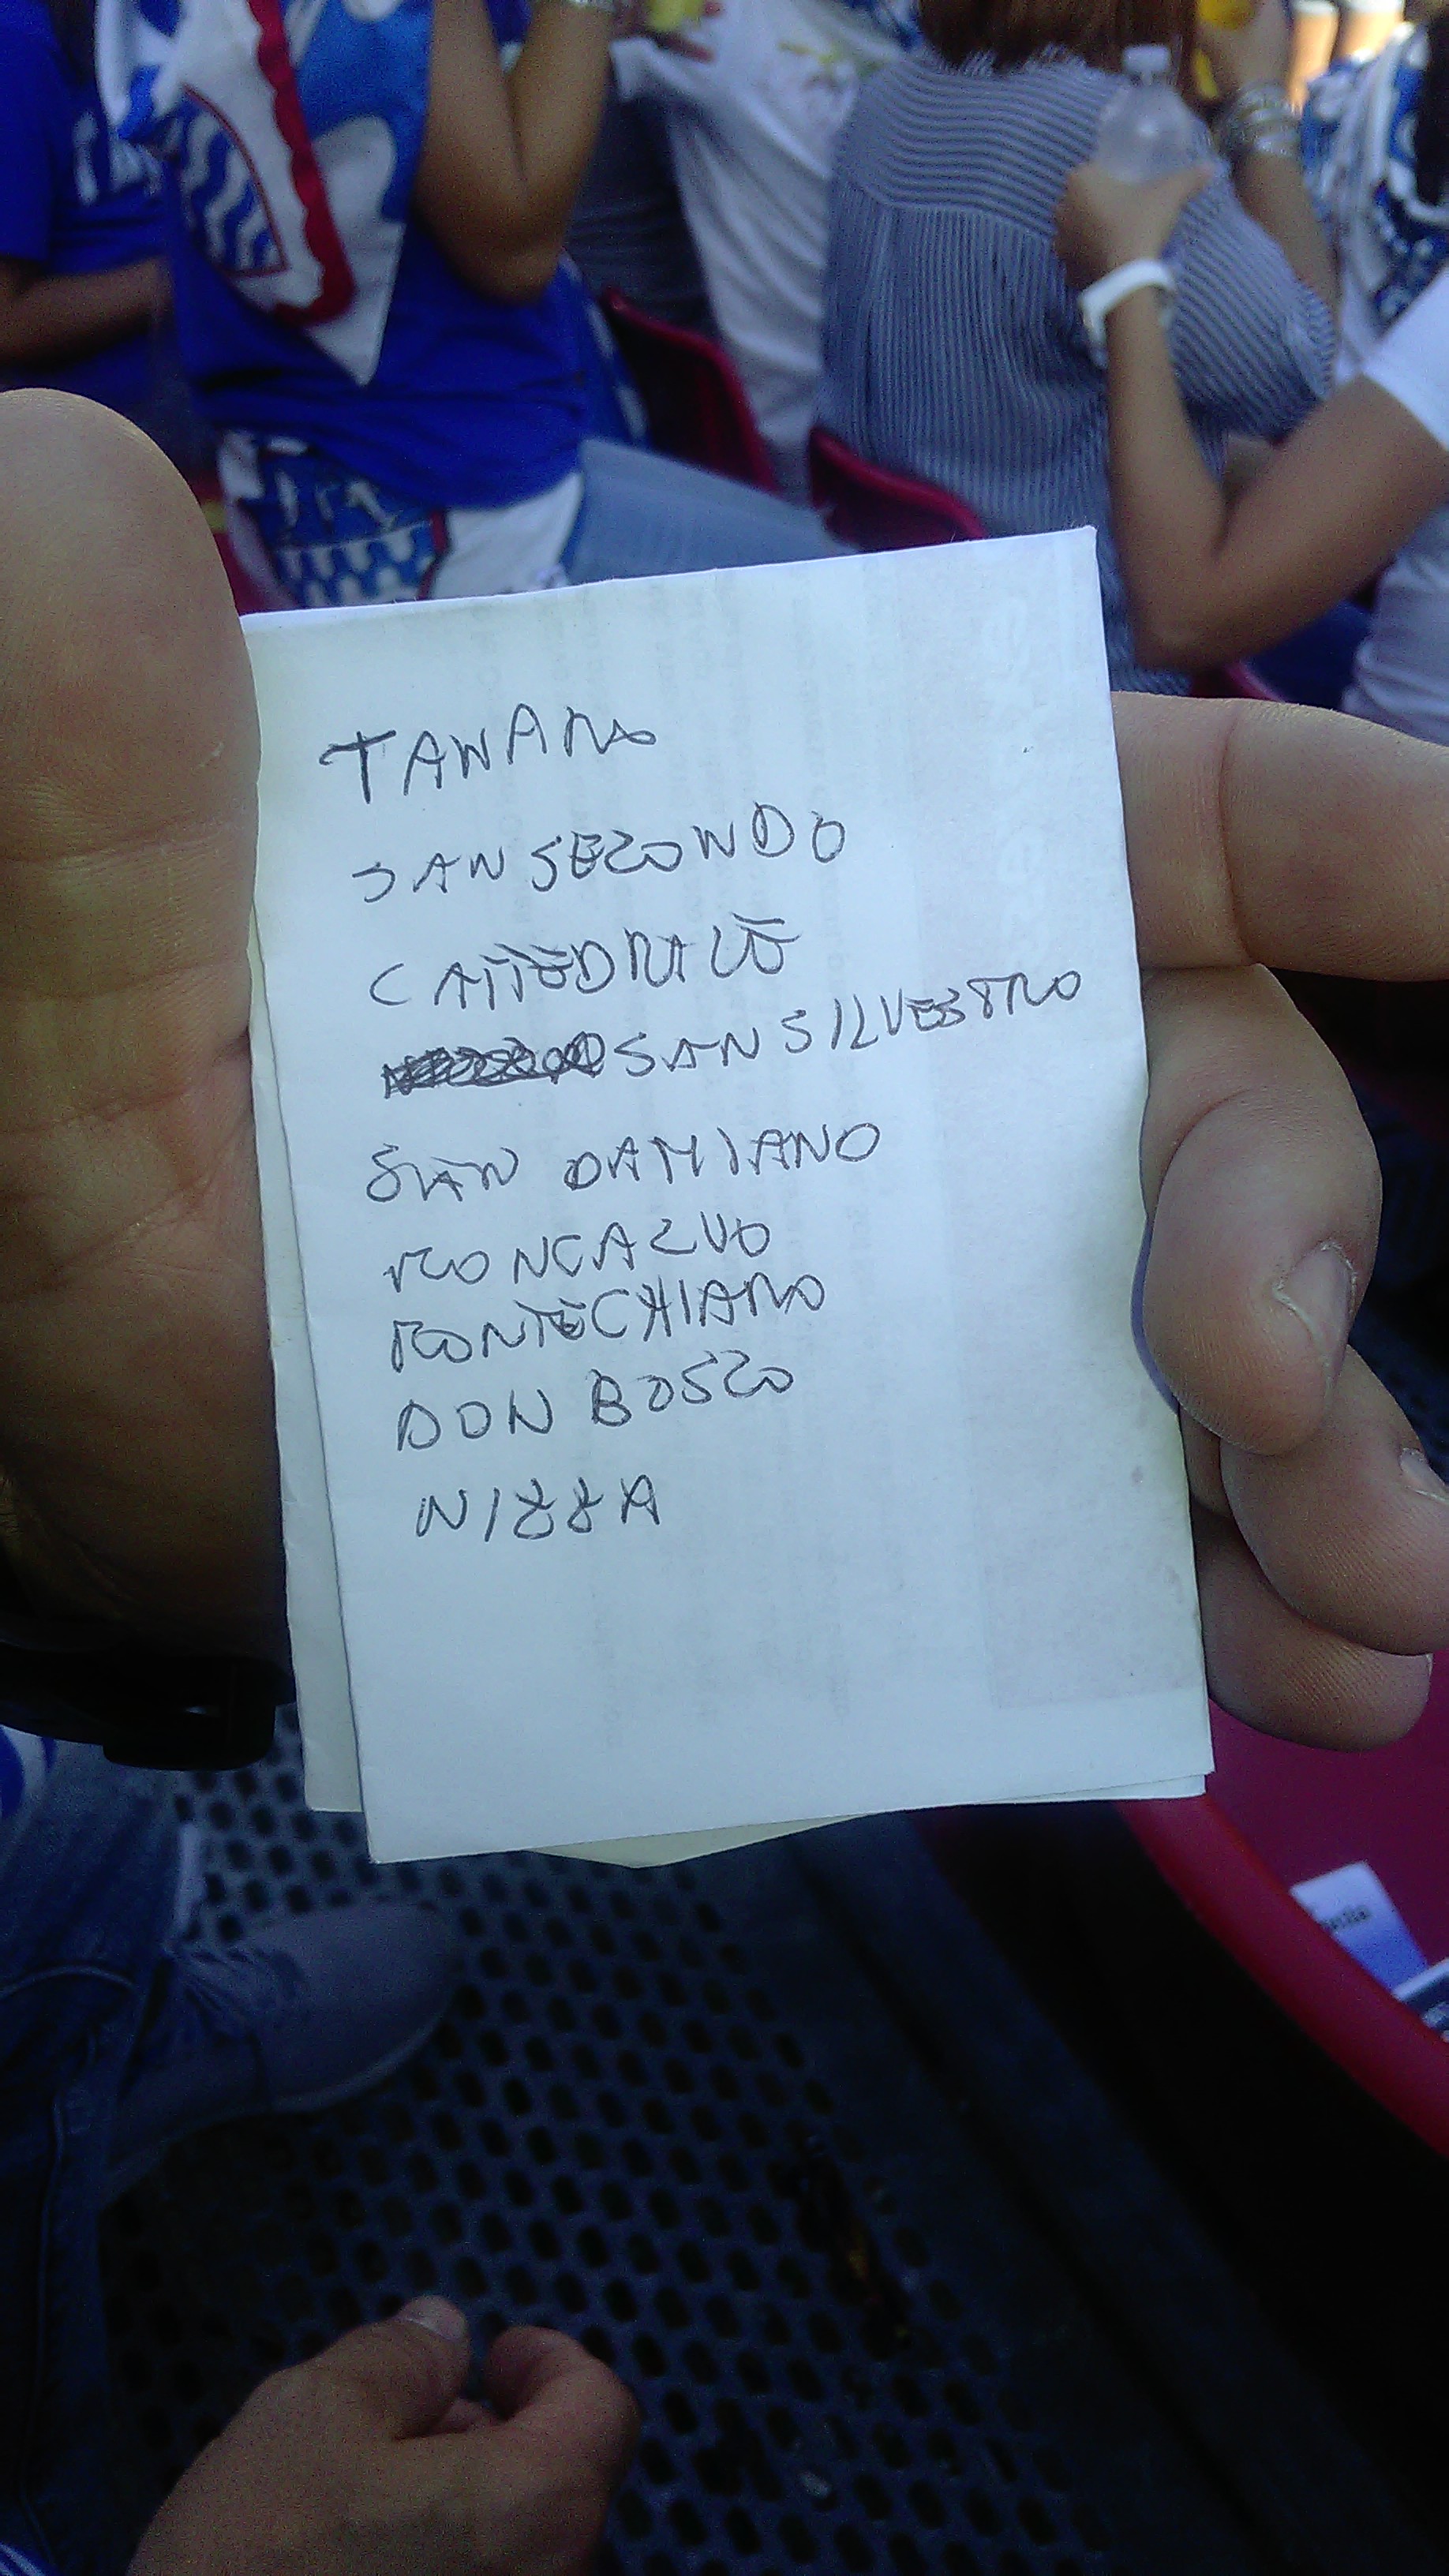 TANARO
SAN SECONDO
CATTEDRALE
SAN SILVESTRO
SAN DAMIANO
MONCALVO
MONTECHIARO
DON BOSCO
NIZZA